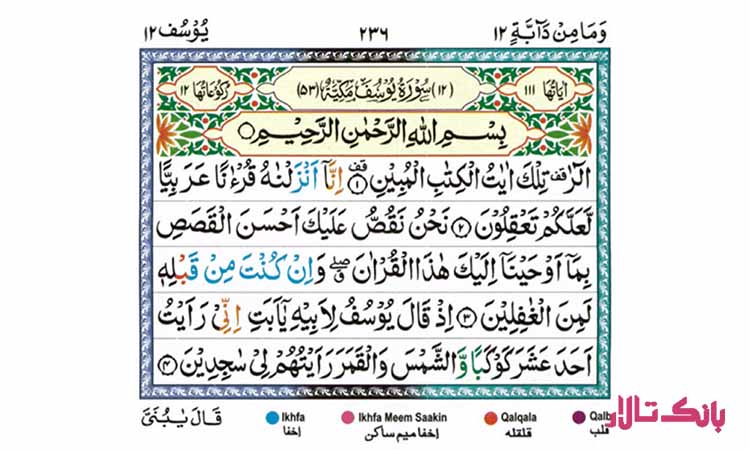 وَمَا مِنْ دَآبَّةٍ ١٢ ٢٣٦ يُوْسُف ١٢
اٰيَاتُهَا ١١١ (١٢) سُوْرَةُ يُوْسُفَ مَكِّيَّةٌ (٥٣) رُكُوْعَاتُهَا ١٢
بِسْمِ اللّٰهِ الرَّحْمٰنِ الرَّحِيْمِ
الٓرٰ ۟قف تِلْكَ اٰيٰتُ الْكِتٰبِ الْمُبِيْنِ ۟قف ١ اِنَّاۤ اَنْزَلْنٰهُ قُرْءٰنًا عَرَبِيًّا
لَّعَلَّكُمْ تَعْقِلُوْنَ ٢ نَحْنُ نَقُصُّ عَلَيْكَ اَحْسَنَ الْقَصَصِ
بِمَاۤ اَوْحَيْنَاۤ اِلَيْكَ هٰذَا الْقُرْاٰنَ ۖ وَاِنْ كُنْتَ مِنْ قَبْلِهٖ
لَمِنَ الْغٰفِلِيْنَ ٣ اِذْ قَالَ يُوْسُفُ لِاَبِيْهِ يٰۤاَبَتِ اِنِّيْ رَاَيْتُ
اَحَدَ عَشَرَ كَوْكَبًا وَّالشَّمْسَ وَالْقَمَرَ رَاَيْتُهُمْ لِيْ سٰجِدِيْنَ ٤
قَالَ يٰبُنَيَّ
Ikhfa Ikhfa Meem Saakin Qalqala Qalb
اخفا اخفا میم ساکن قلقلہ قلب
بانک تالار